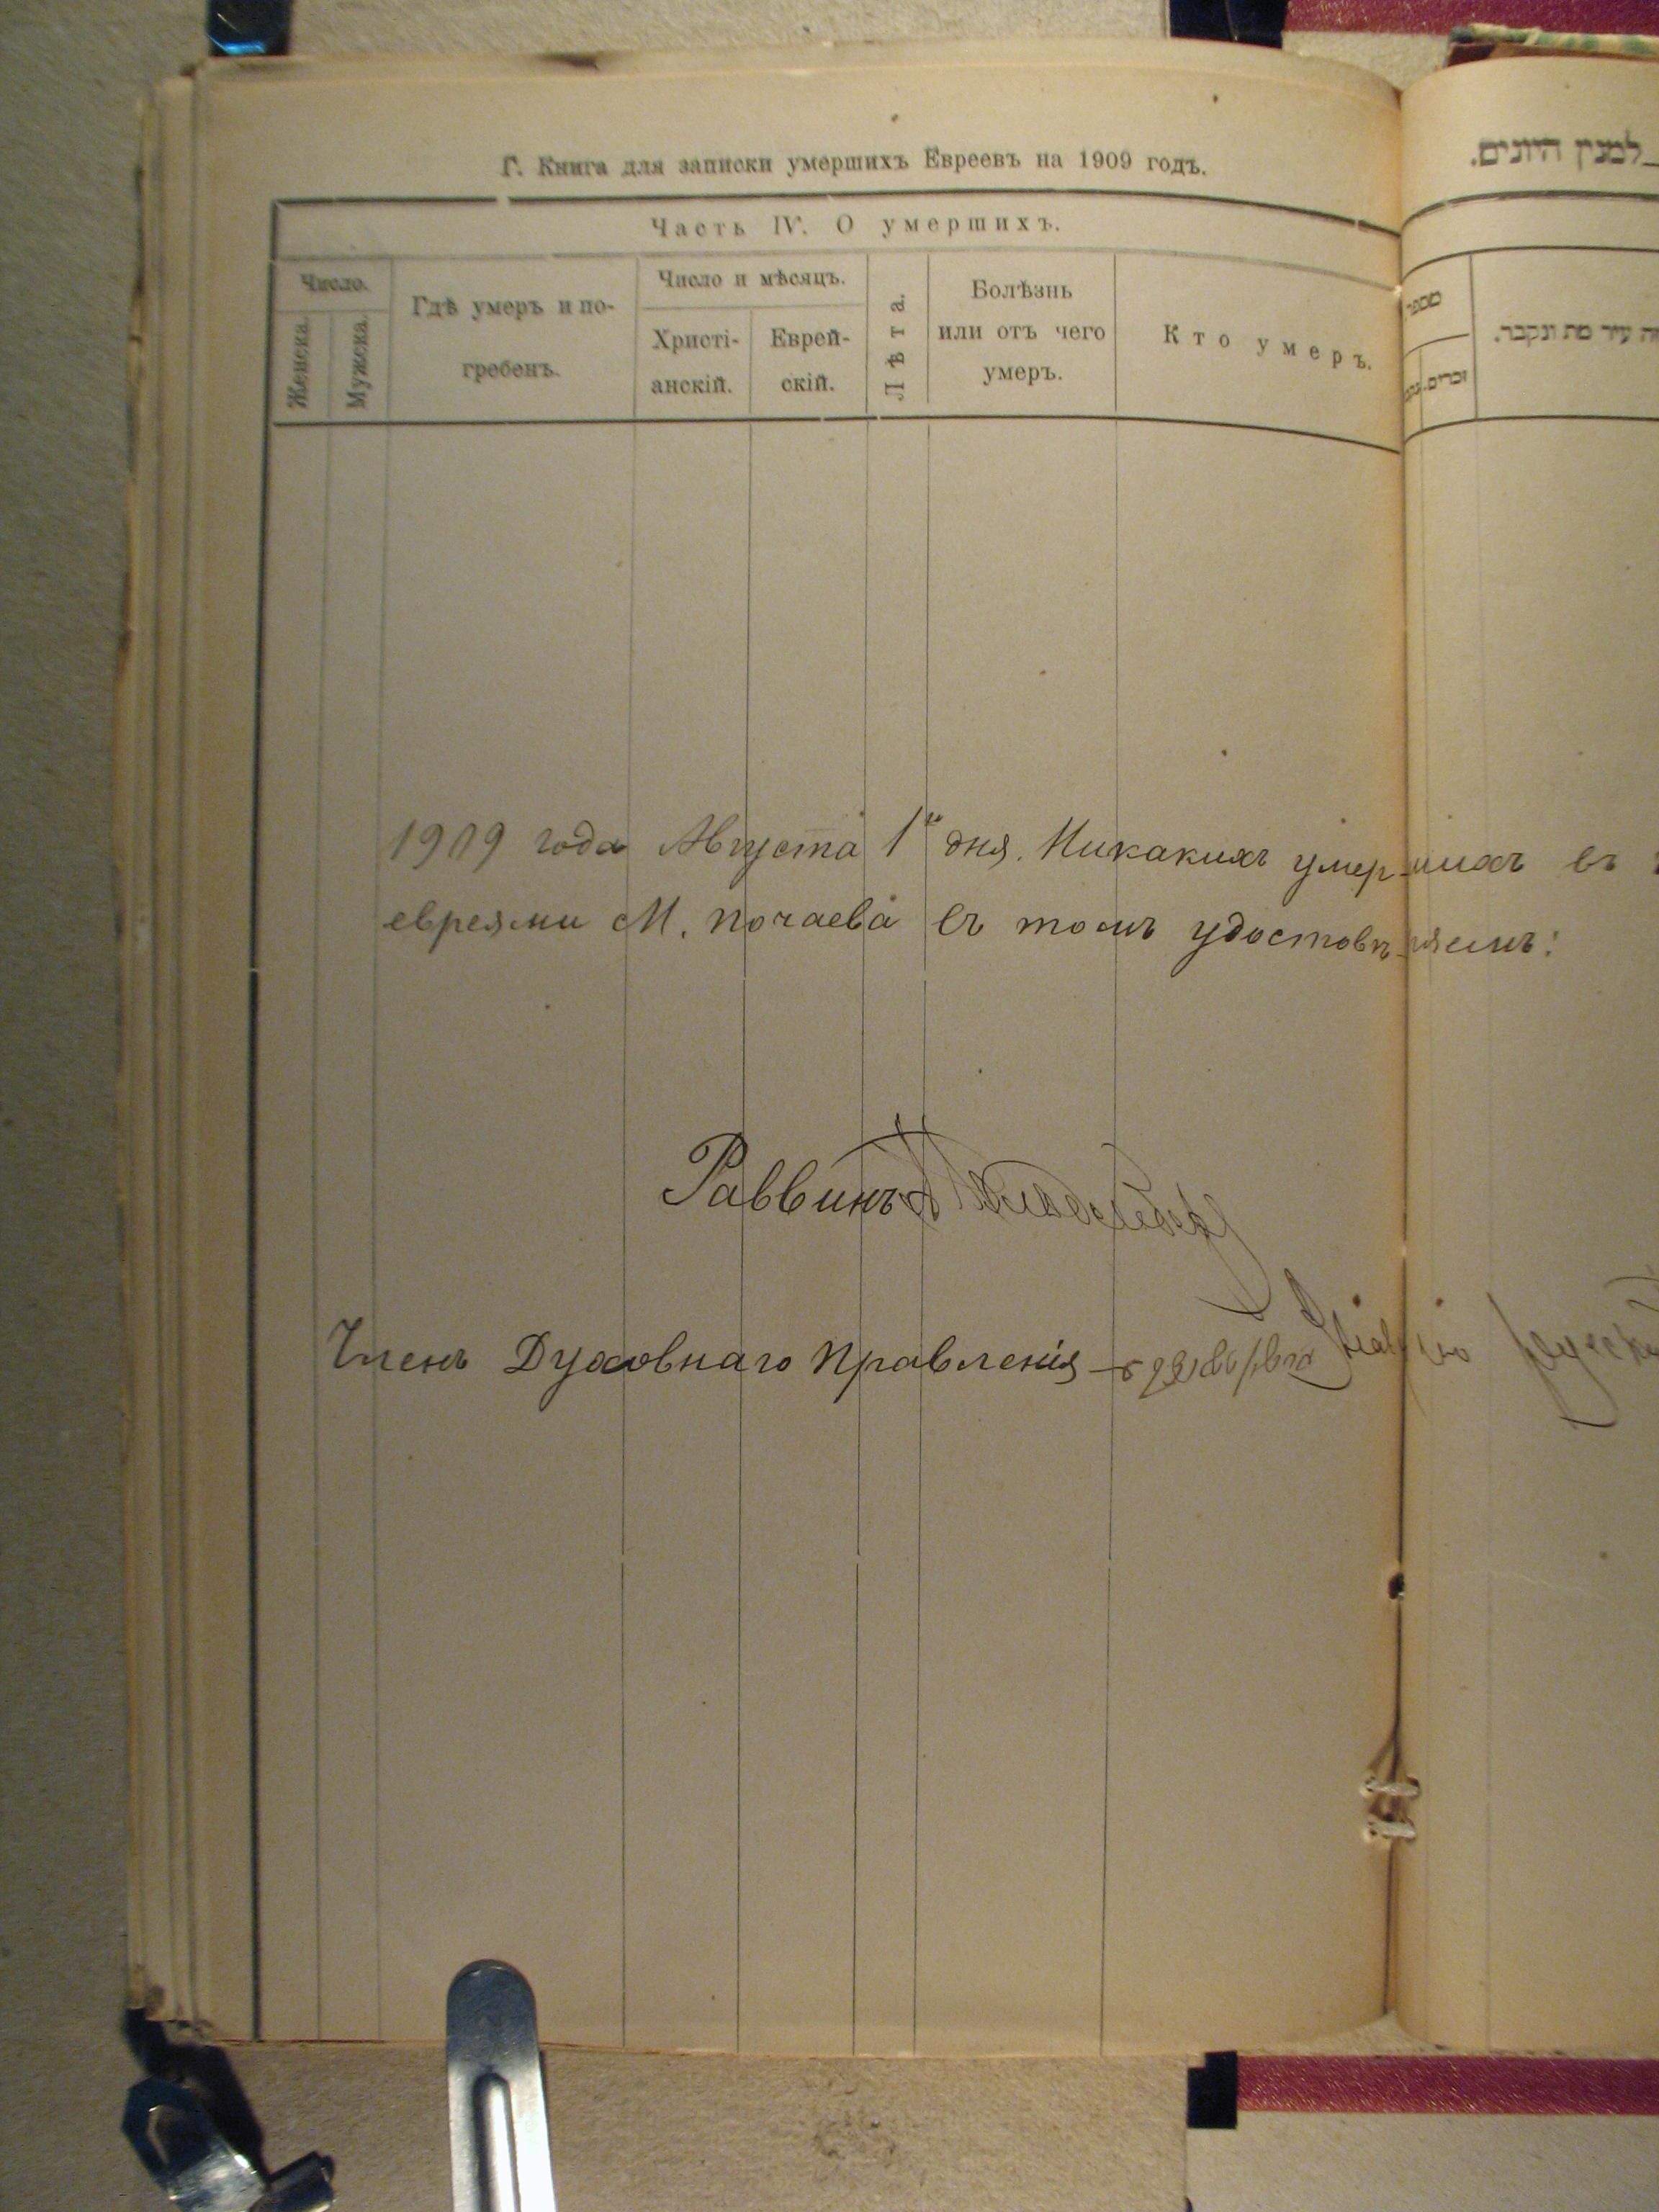 Г. Книга для записки умершихъ Евреевъ на 1909 годъ.
Часть IV. О умершихъ.
Число.
Женска.
Мужска.
Гдѣ умеръ и по-
гребенъ.
Число и мѣсяцъ.
Христі-
анскій.
Еврей-
скій.
Лѣта.
Болѣзнь
или отъ чего
умеръ.
Кто умеръ.
למנין היונים.
מספר
זכרים.
עיר מת ונקבר.
1909 года Августа 1го дня. Никакихъ умершихъ въ
евреями М. почаева въ томъ удостовѣряемъ:
Раввинъ
Членъ Духовнаго Правленія